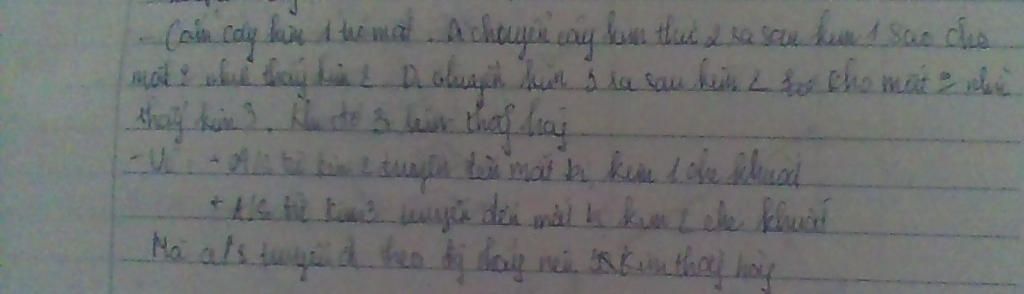 - Cắm cây kim 1 trc mắt. Di chuyển cây kim thứ 2 ra sau kim 1 sao cho
mắt ko nhìn thấy kim 2. Di chuyển kim 3 ra sau kim 2 sao cho mắt ko nhìn
thấy kim 3. Khi đó 3 kim thẳng hàng
- Vì: + A/s từ kim 2 truyền đến mắt bị kim 1 che khuất
+ A/s từ kim 3 truyền đến mắt bị kim 2 che khuất
Mà a/s truyền đi theo đg thẳng nên 3 kim thẳng hàng